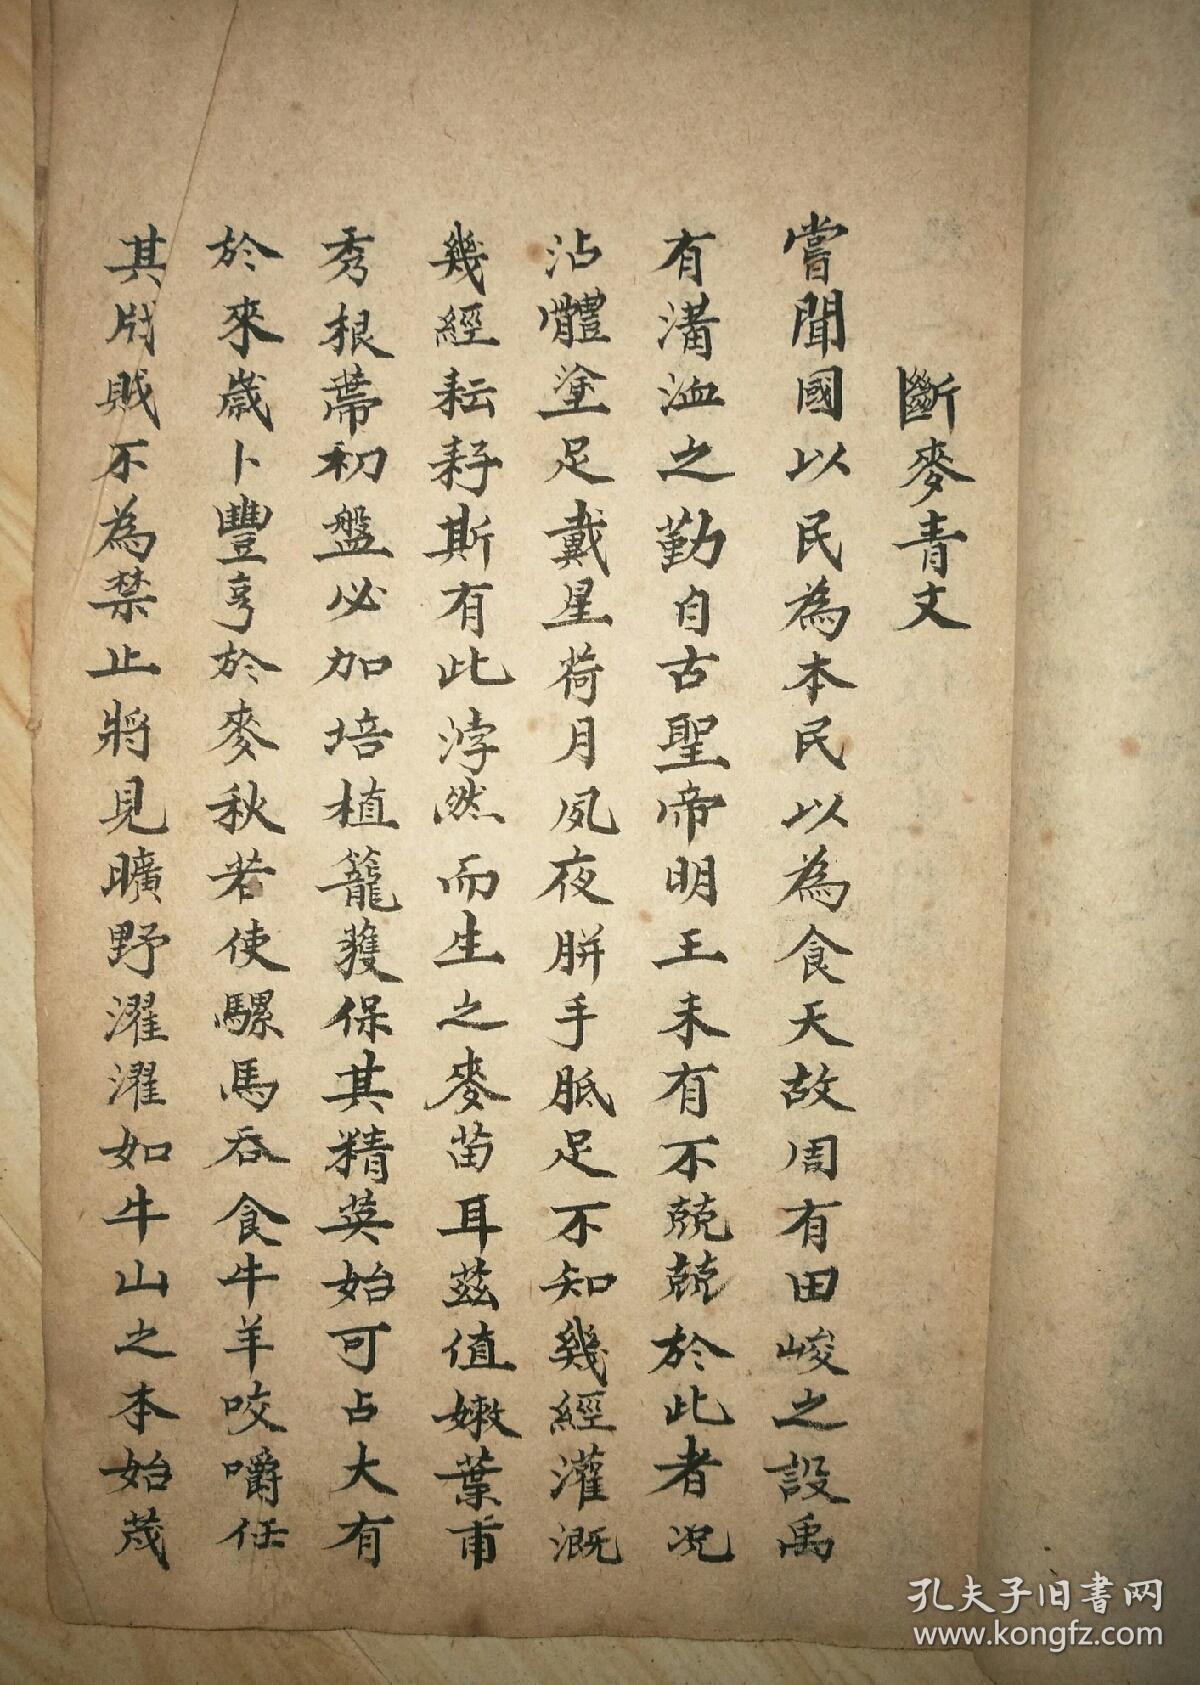 斷麥青文
嘗聞國以民為本民以為食天故周有田峻之設禹
有溝洫之勤自古聖帝明王未有不兢兢於此者况
沾體塗足戴星荷月夙夜胼手胝足不知幾經灌溉
幾經耘耔斯有此浡然而生之麥苗耳茲值嫩葉甫
秀根蒂初盤必加培植籠獲保其精英始可占大有
於來歲卜豐亨於麥秋若使騾馬吞食牛羊咬嚼任
其戕賊不為禁止將見曠野濯濯如牛山之本始茂
孔夫子旧书网
www.kongfz.com